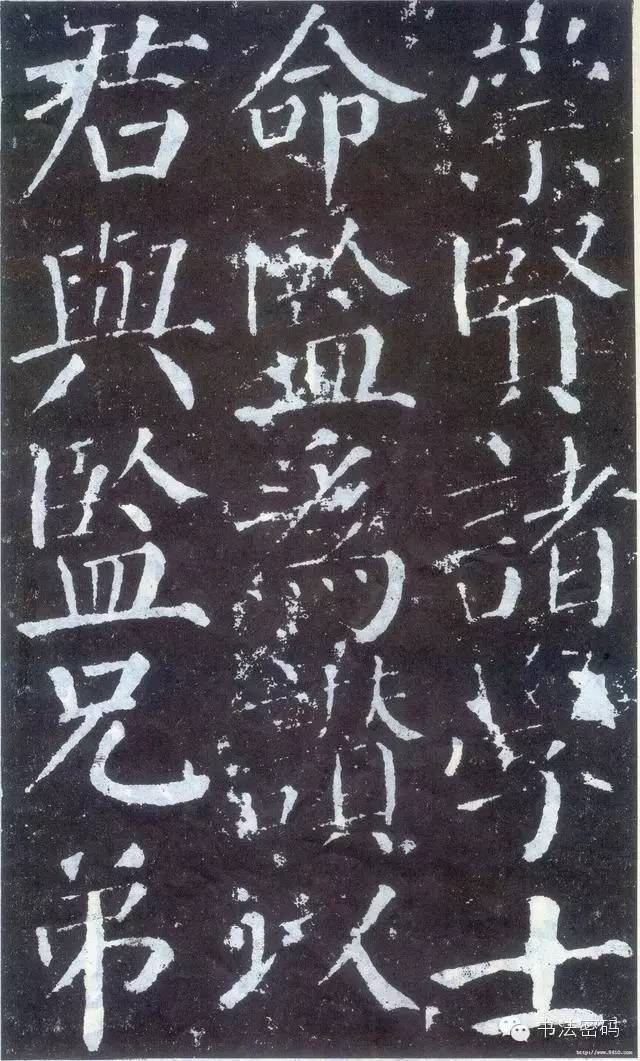 崇賢諸學士
命監爲讚以
君與監兄弟
书法密码
http://www.9610.com